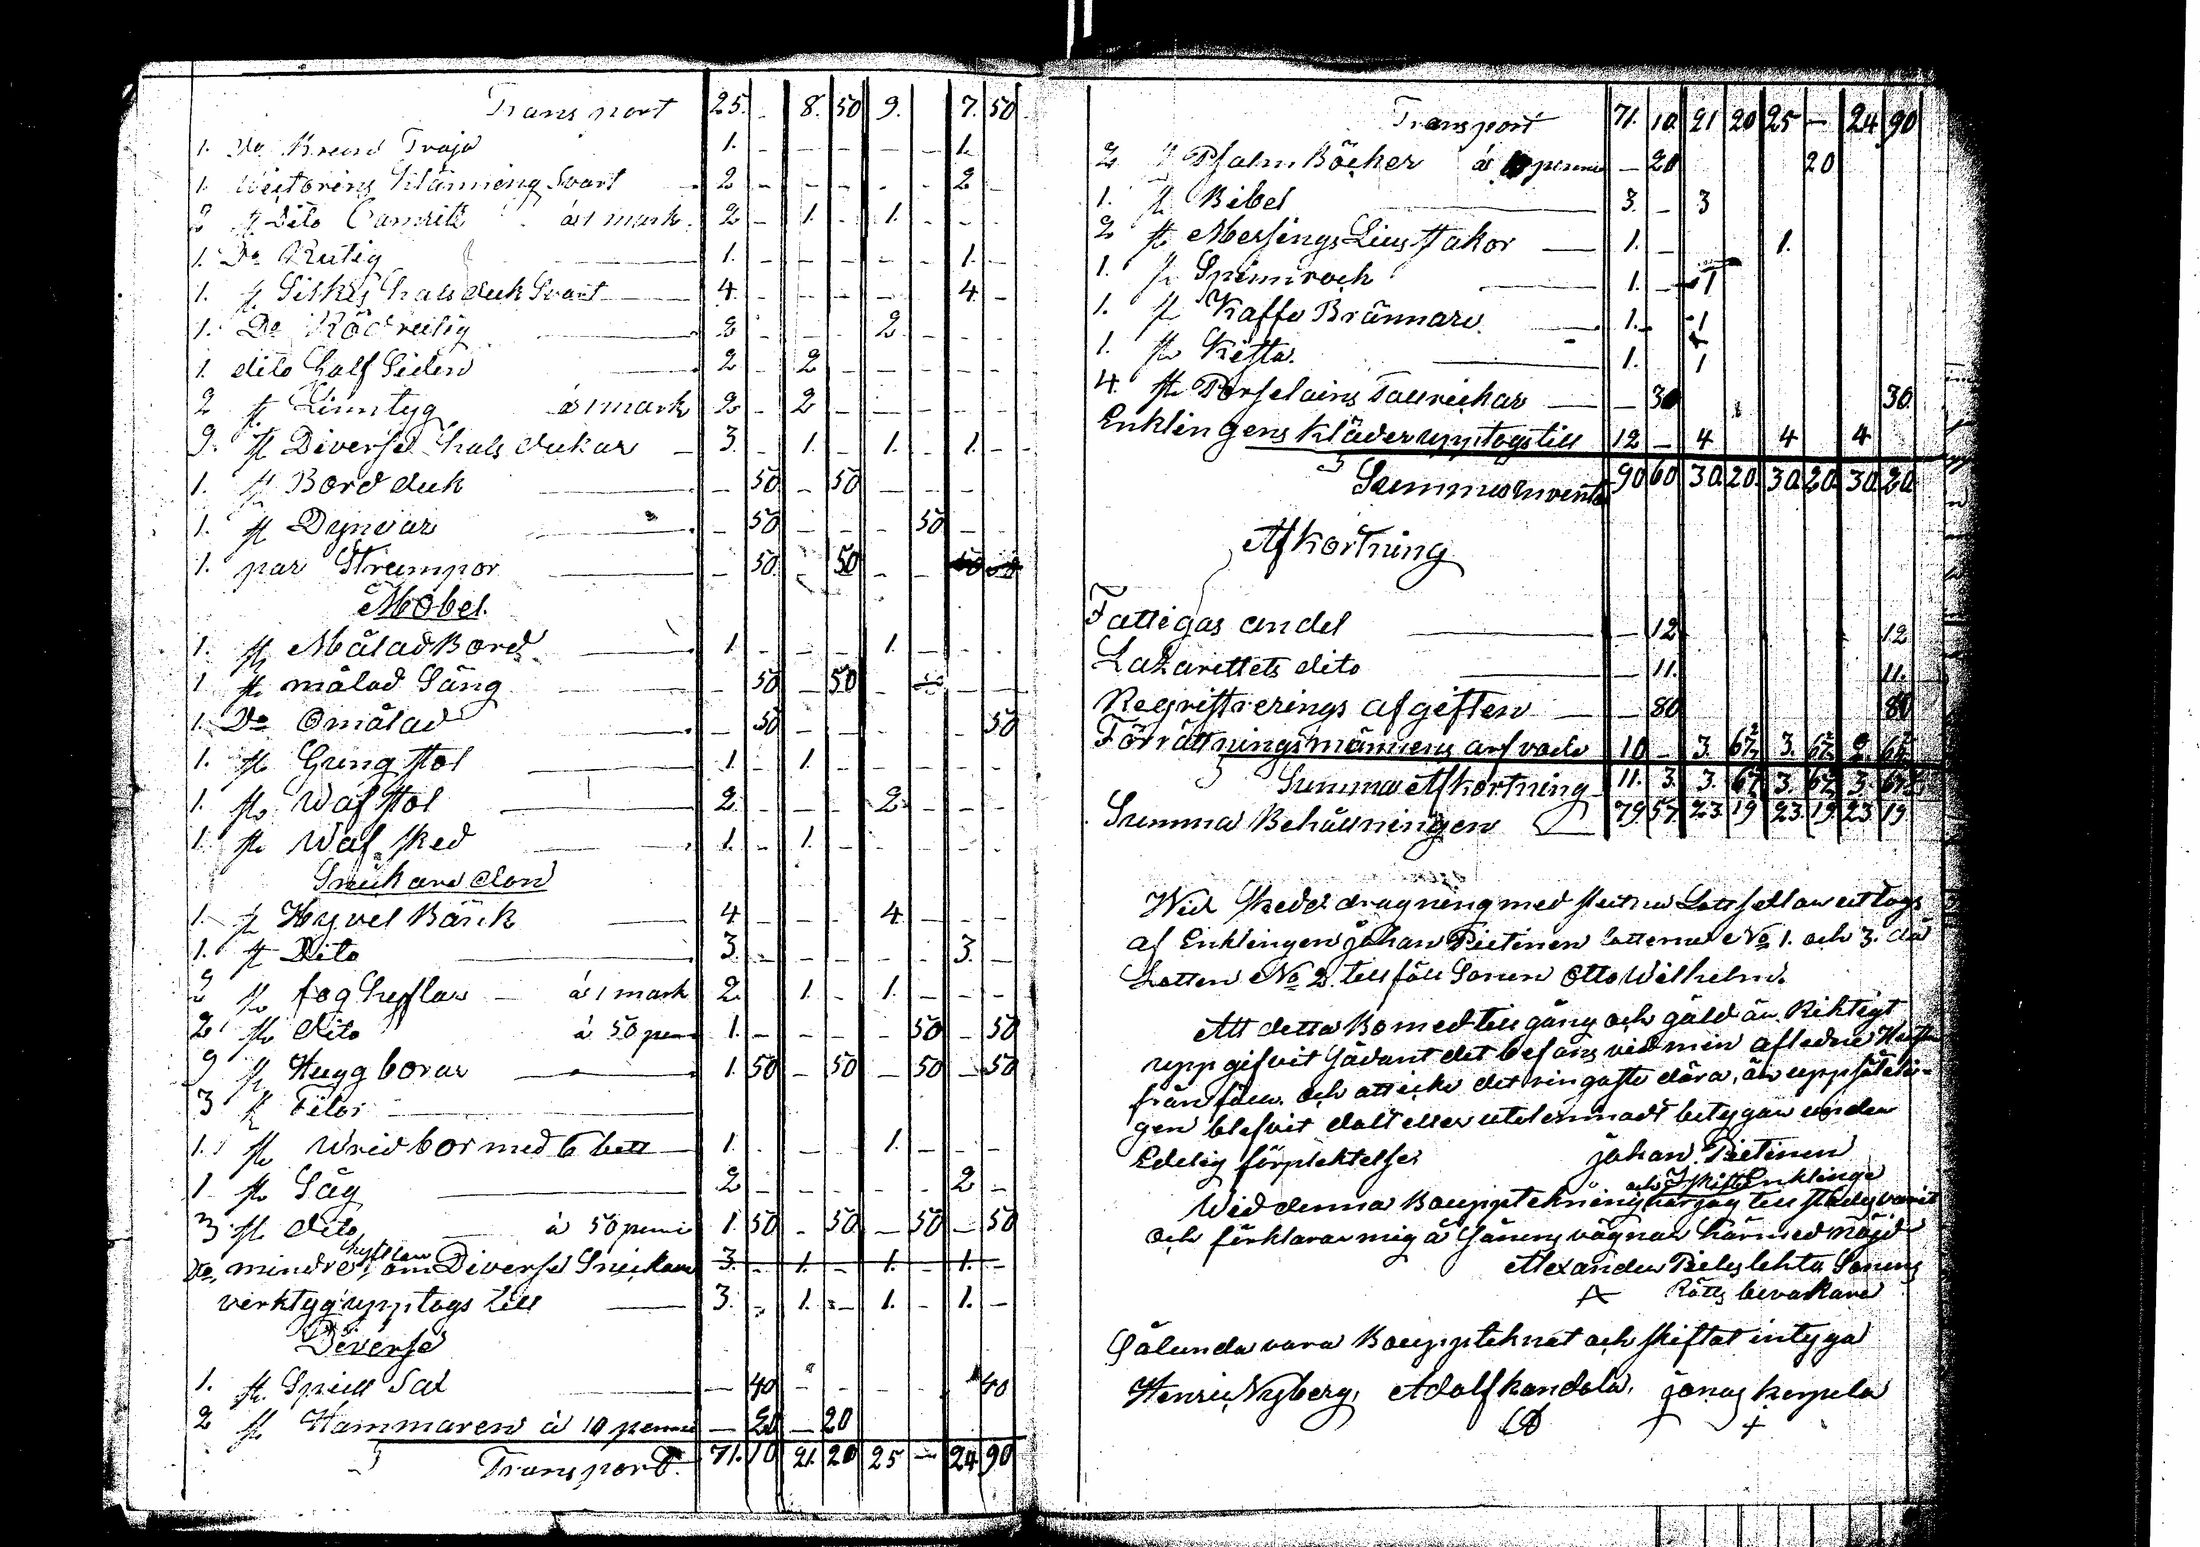 Transport 25. - 8. 50 9. 7. 50
1. Do Troja 1. - - - - - 1.
1. Svart 2 - - - - - 2 -
2 st Dito á 1 mark. 2 - 1. - 1. - - -
1. Do Rutig 1. - - - - - 1. -
1. st Silkes halsduk Svart 4. - - - - - 4. -
1. Do Röd rutig 2 - - - 2. - - -
1. dito half Siden 2 - 2 - - - - -
2 st Linntyg á 1 mark 2 - 2 - - - - -
9. st Diverse hals dukar 3. - 1. - 1. - 1. -
1. st Bord duk - 50 - 50 - - - -
1. st Dynvar - 50 - - - 50 - -
1. par Strumpor - 50. - 50 - -
Möbel.
1. st Målad Bord 1. - - - 1. - - -
1 st målad Säng - 50 - 50 - - - -
1. Do Omålad - 50 - - - - - 50
1. st Gungstol 1. - 1. - - - - -
1. st Wäfstol 2. - - - 2. - - -
1. st Wäf sked 1. - 1. - - - - -
Snickare don
1. st Hyvel Bänk 4 - - - 4. - - -
1. st Dito 3. - - - - - 3. -
2 st foghyflar á 1 mark 2. 1. - 1. - - -
2 st dito á 50 penni 1. - - - - 50 - 50
9 st Hugg borar 1. 50 - 50 - 50 - 50
3 st Filar
1. st Wridbor med 6 bett 1. - - - 1. - - -
1 st Såg 2 - - - - - 2 -
3 st dito á 50 penni 1. 50 - 50. - 50 - 50
Do mindre hyflar om Diverse Snickare 3. - 1. - 1. - 1. -
verktyg upptogs till 3. - 1. - 1. - 1. -
Diverse
1. st Spill Sal - 40 - - - - 40
2 st Hammaren á 10 penni - 20 - 20
Transport. 71. 10 21. 20 25 - 24 90
Transport 71. 10. 21 20 25 - 24 90
2 st Psalm Böcker á 10 penni - 20 20
1. st Bibel 3. - 3
2 st Messings Liusstakor 1. - 1.
1. st Spinnrock 1. - 1
1. st Kaffe Brännare 1. 1
1. st Kista. 1. 1
4 st Porselains Tallrickar - 30 30
Enklingens kläder upptogs till 12 - 4 4 4
Summa Invent 90 60 30. 20. 30. 20. 30. 20
Afkortning
Fattigas andel - 12 12
Lazarettets dito - 11. 11.
Registrerings afgiften - 80 80
Förrättningsmännens arfvode 10 - 3. 67 3. 67 2. 66
Summa Afkortning 11. 3. 3. 67 3. 67 3. 67
Summa Behållningen 79 57 23. 19 23. 19 23 19
Wid skedd dragning med slutna Lottsedlar uttogs
af Enklingen Johan Pietinen lotterne No 1. och 3. då
Lotten No 2. tillföll Sonen Otto Wilhelm.
Att detta Bo med tillgång och gäld är Riktigt
uppgifvit sådant det befans vid min aflidne Hustru
frånfälle och att icke det ringaste däraf är uppsåteli-
gen blefvit dålt eller utelemnadt betygar under
Edelig förpliktelse. Johan Pietinen
Enklinge
Wid denna Bouppteckning och Skifte har jag tillstädes varit
och förklarar mig å Sonens vägnar härmed nöjd
Alexander Sonens
X Rätts bevakare
Sålunda vara Bouppteknat och skiftat intyga
Henric Nyberg, Adolf kandola, Jonas kerpela
+